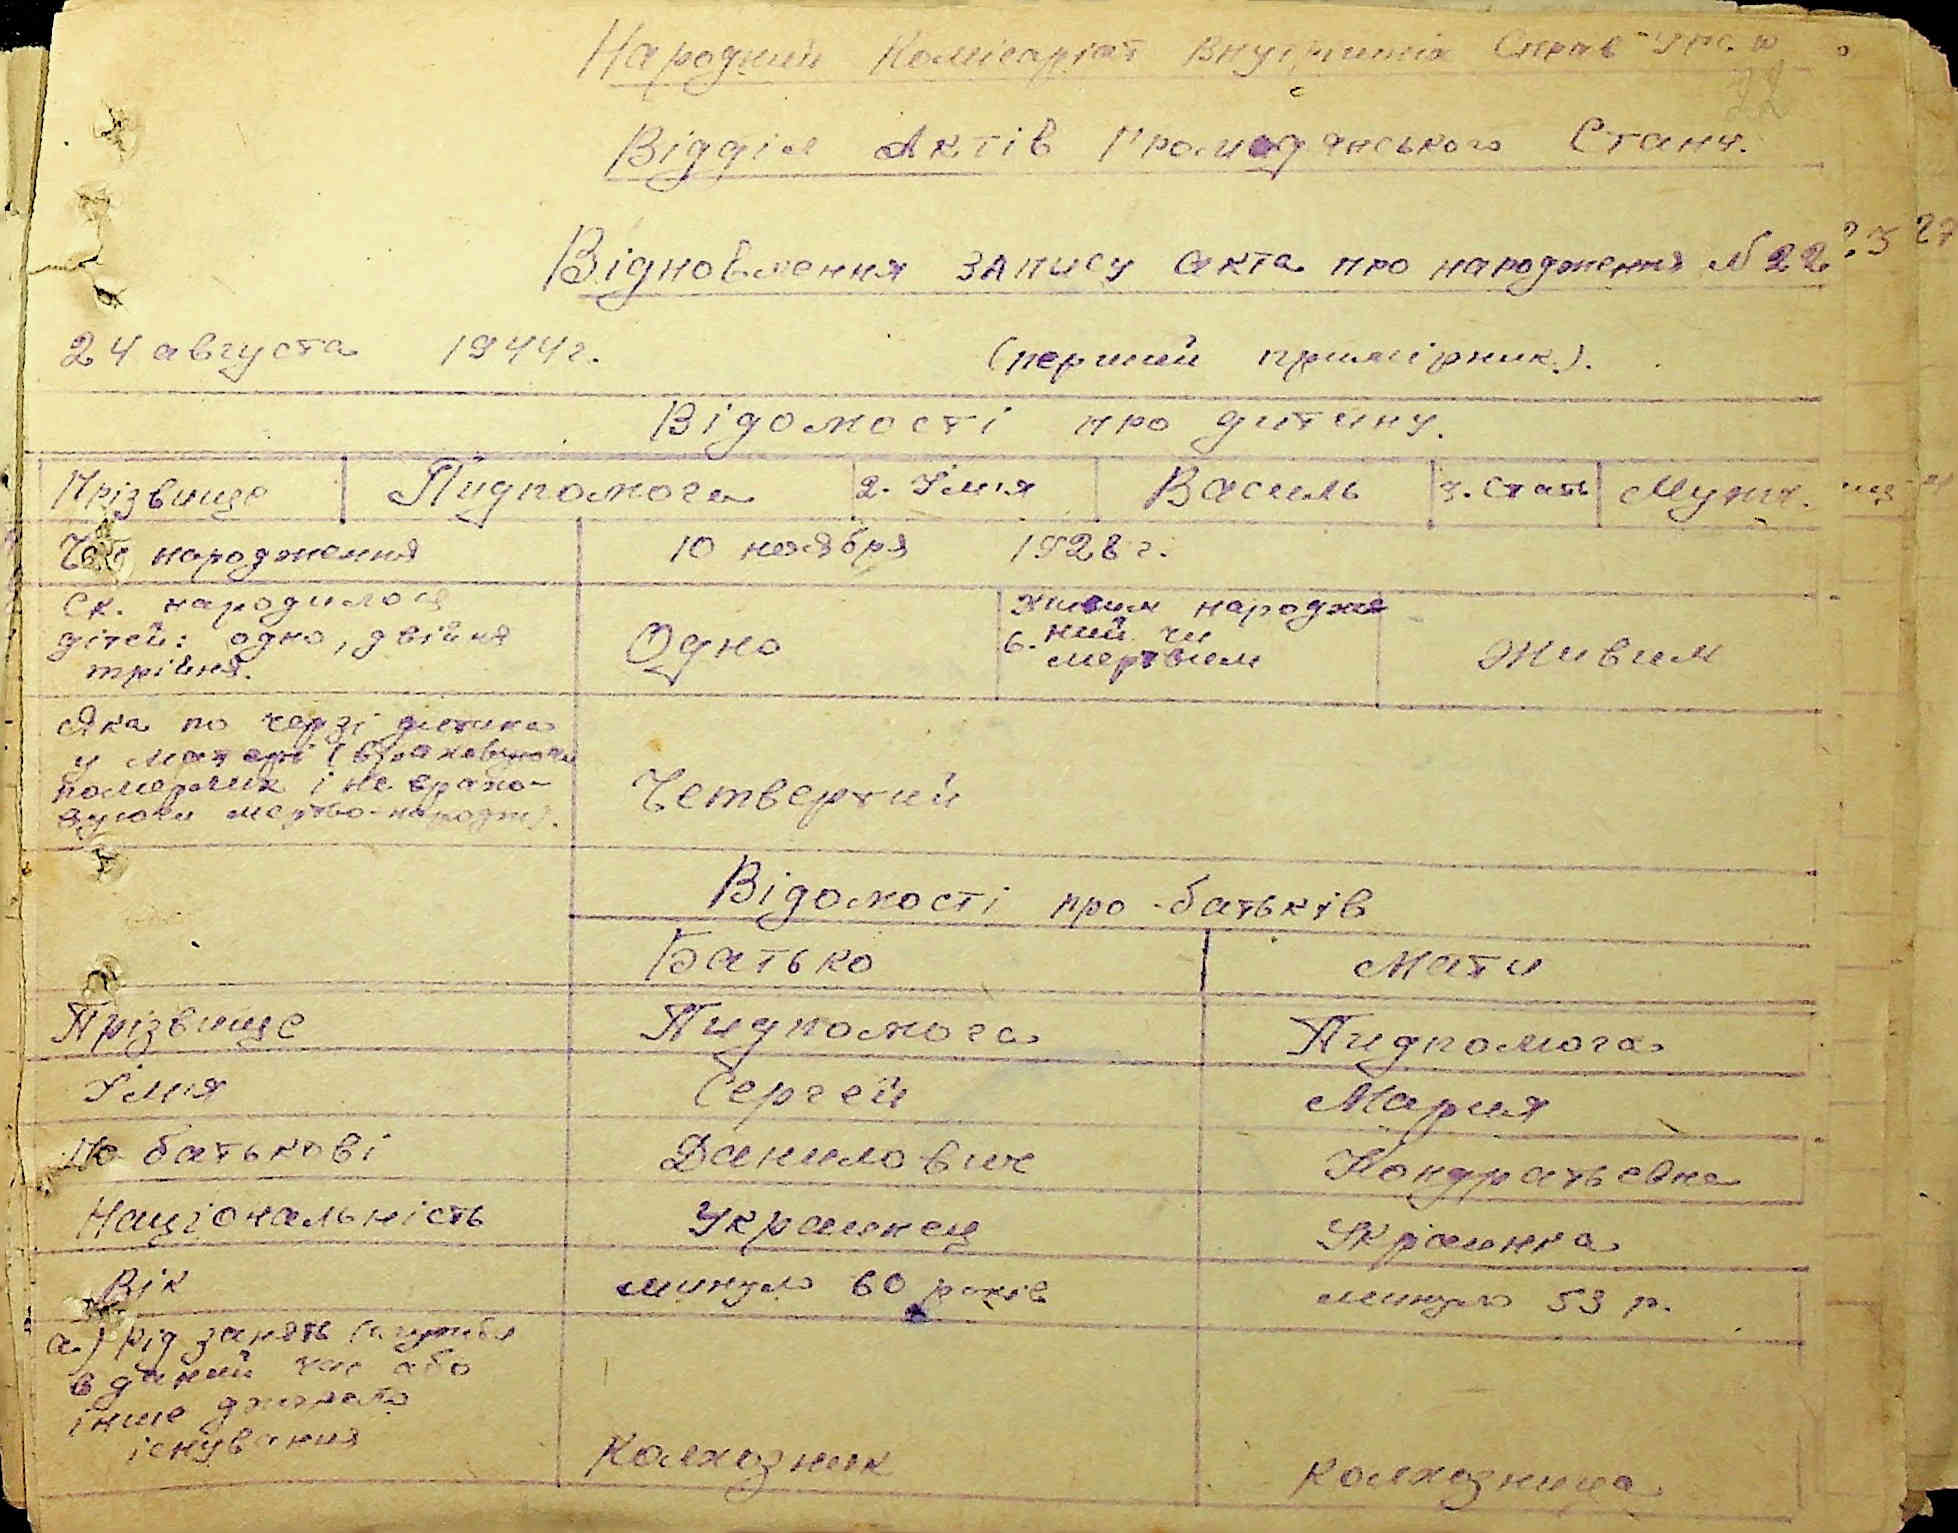 Народний Комісаріат Внутрішніх Справ
Відділ Актів Громадянського Стану.
Відновлення запису акта про народження № 22
24 августа 1944 г. (перший примірник).
Відомості про дитину.
Прізвище Пидпомога 2. Імʼя Василь 3. Стать Мужч.
Час народження 10 ноября 1928 г.
Ск. народилося дітей: одно, двійня трійня. Одно 6. Живим народже ний чи мертвим Живим
Яка по черзі дитина у матері (враховуючи померлих і не врахо- вуючи мертво-народж). Четвертий
Відомості про батьків
Батько Мати
Прізвище Пидпомога Пидпомога
Імʼя Сергей Мария
По батькові Данилович Кондратьевна
Національність Украинец Украинка
Вік минуло 60 років минуло 53 р.
а) Рід занять (служба в даний час або інше джерело існування Колхозник Колхозница